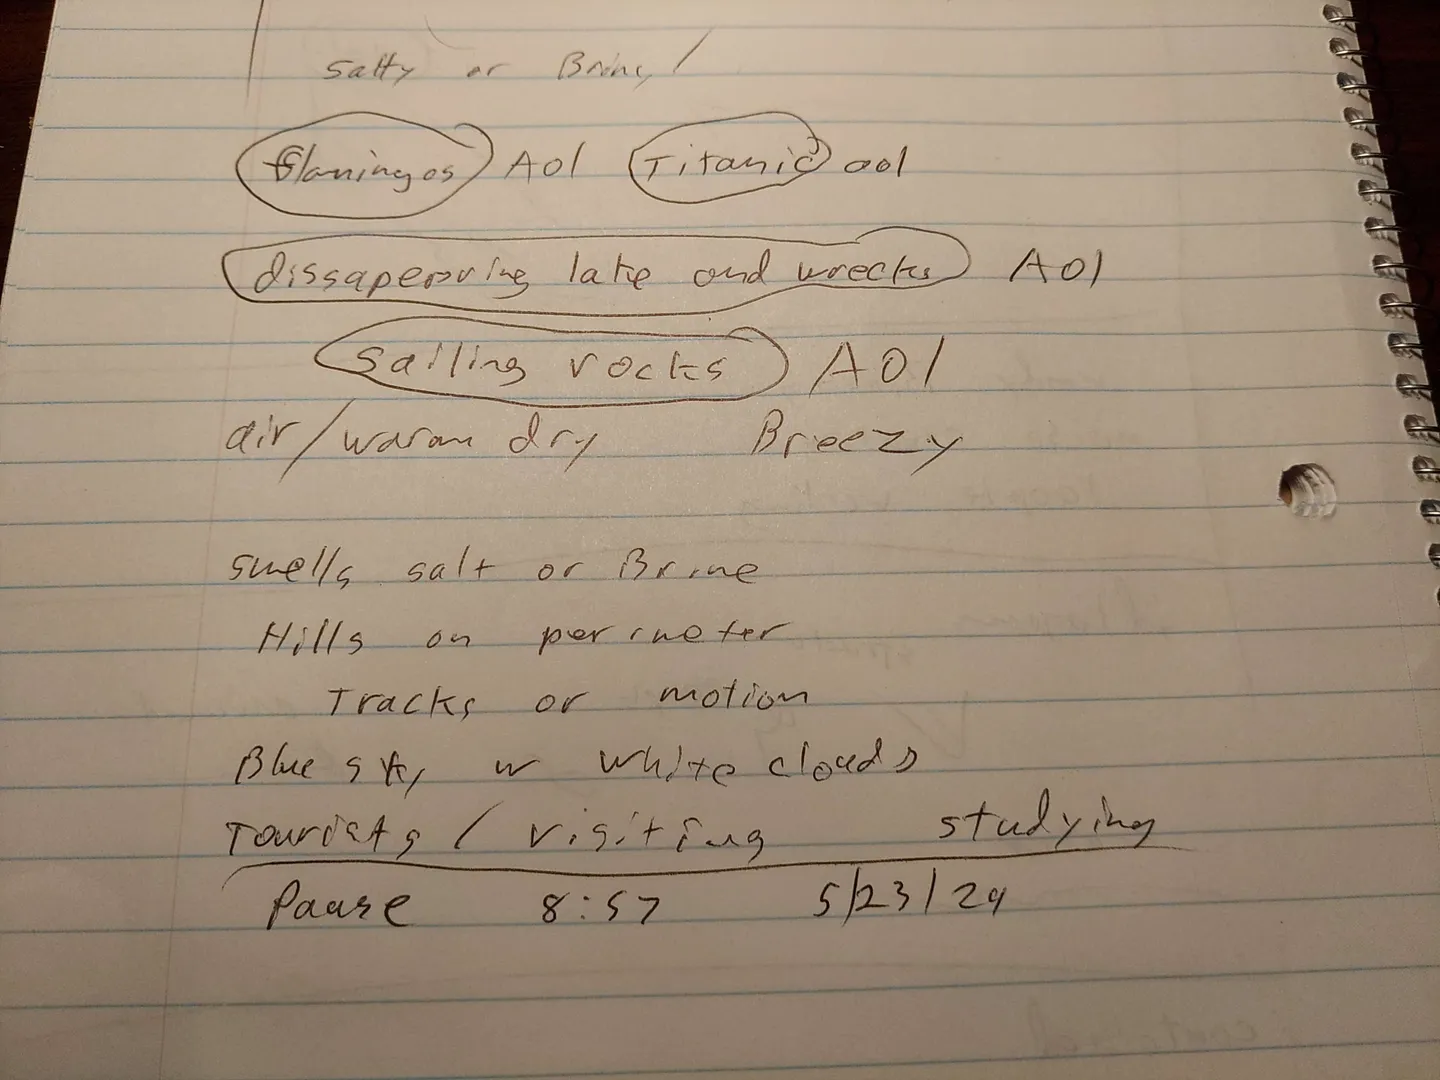 salty or Briney
flamingos AOl Titanic aol
dissapearing lake and wrecks AOl
sailing rocks AOl
air/warm dry Breezy
smells salt or Brine
Hills on perimeter
Tracks or motion
Blue sky w white clouds
Tourists / visiting studying
Pause 8:57 5/23/24